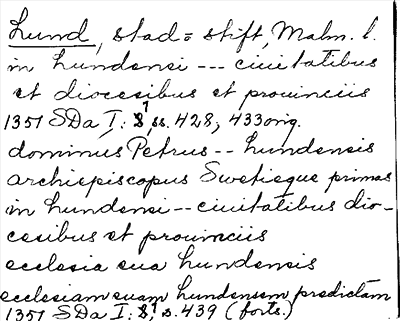 Lund, stad = stift, Malm. l.
in Lundensi --- ciuitatibus
et diocesibus et prouinciis
1351 SDa I: 8, ss. 428, 433 orig.
dominus Petrus -- Lundensis
archiepiscopus Swetieque primas
in Lundensi -- ciuitatibus dio-
cesibus et prouinciis
ecclesia sua Lundensis
ecclesiam suam Lundensem predictam
1351 SDa I: 8, s. 439 (forts.)